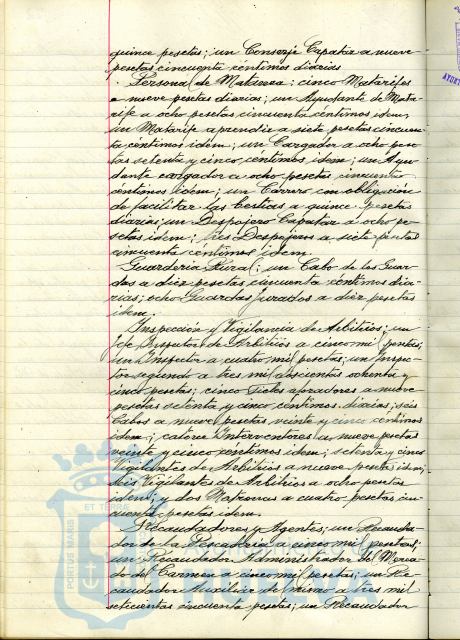 quince pesetas; un Conserje Capataz a nueve
pesetas cincuenta céntimos diarias.
Personal de Matanza: cinco Matarifes
a nueve pesetas diarias; un Ayudante de Mata-
rife a ocho pesetas cincuenta centimos idem,
un Matarife aprendiz a siete pesetas cincuen-
ta centimos idem; un Cargador a ocho pese-
tas setenta y cinco céntimos idem; un Ayu-
dante cargador a ocho pesetas cincuenta
céntimos idem; un Carrero con obligación
de facilitar las bestias a quince pesetas
diarias; un Despojero Capataz a ocho pe-
setas idem; tres Despojeros a siete pesetas
cincuenta céntimos idem.
Guardería Rural: un Cabo de los Guar-
das a diez pesetas cincuenta céntimos dia-
rias; ocho Guardas jurados a diez pesetas
idem.
Inspección y Vigilancia de Arbitrios; un
Jefe Inspector de Arbitrios a cinco mil pesetas;
un Inspector a cuatro mil pesetas; un Inspec-
tor segundo a tres mil doscientas ochenta y
cinco pesetas; cinco Fieles aforadores a nueve
pesetas setenta y cinco céntimos diarias; seis
Cabos a nueve pesetas veinte y cinco céntimos
idem; catorce Interventores a nueve pesetas
veinte y cinco centimos idem; setenta y cinco
Vigilantes de Arbitrios a nueve pesetas idem;
seis Vigilantes de Arbitrios a ocho pesetas
idem; y dos Matronas a cuatro pesetas cin-
cuenta pesetas idem.
Recaudadores y Agentes; un Recauda-
dor de la Pescadería a cinco mil pesetas;
un Recaudador Administrador del Merca-
do del Carmen a cinco mil pesetas; un Re-
caudador Auxiliar de mismo a tres mil
setecientas cincuenta pesetas; un Recaudador
ET TERRA
PORTUS MARIS
AYUNT